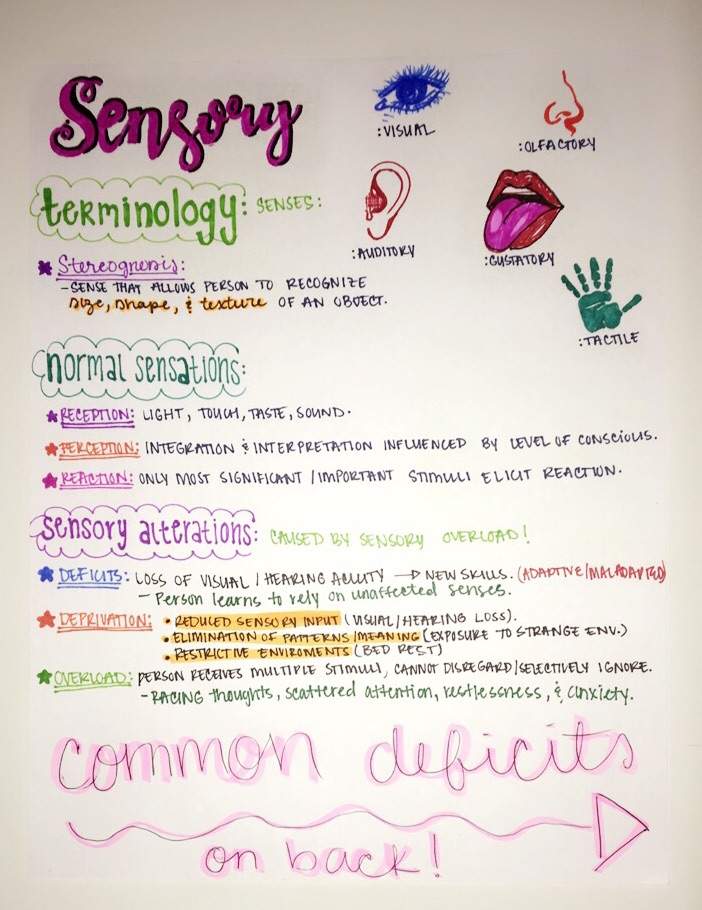 Sensory
:VISUAL
:OLFACTORY
terminology: SENSES:
:AUDITORY
:GUSTATORY
:TACTILE
Stereognosis:
-SENSE THAT ALLOWS PERSON TO RECOGNIZE
size, shape, & texture OF AN OBJECT.
normal sensations:
RECEPTION: LIGHT, TOUCH, TASTE, SOUND.
PERCEPTION: INTEGRATION & INTERPRETATION INFLUENCED BY LEVEL OF CONSCIOUS.
REACTION: ONLY MOST SIGNIFICANT/IMPORTANT STIMULI ELICIT REACTION.
sensory alterations: CAUSED BY SENSORY OVERLOAD!
DEFICITS: LOSS OF VISUAL/HEARING ACUITY → NEW SKILLS. (ADAPTIVE/MALADAPTED)
- Person learns to rely on unaffected senses.
DEPRIVATION: • REDUCED SENSORY INPUT (VISUAL/HEARING LOSS).
• ELIMINATION OF PATTERNS/MEANING (EXPOSURE TO STRANGE ENV.)
• RESTRICTIVE ENVIROMENTS (BED REST)
OVERLOAD: PERSON RECEIVES MULTIPLE STIMULI, CANNOT DISREGARD/SELECTIVELY IGNORE.
- RACING thoughts, scattered attention, restlessness, & anxiety.
common deficits
on back!